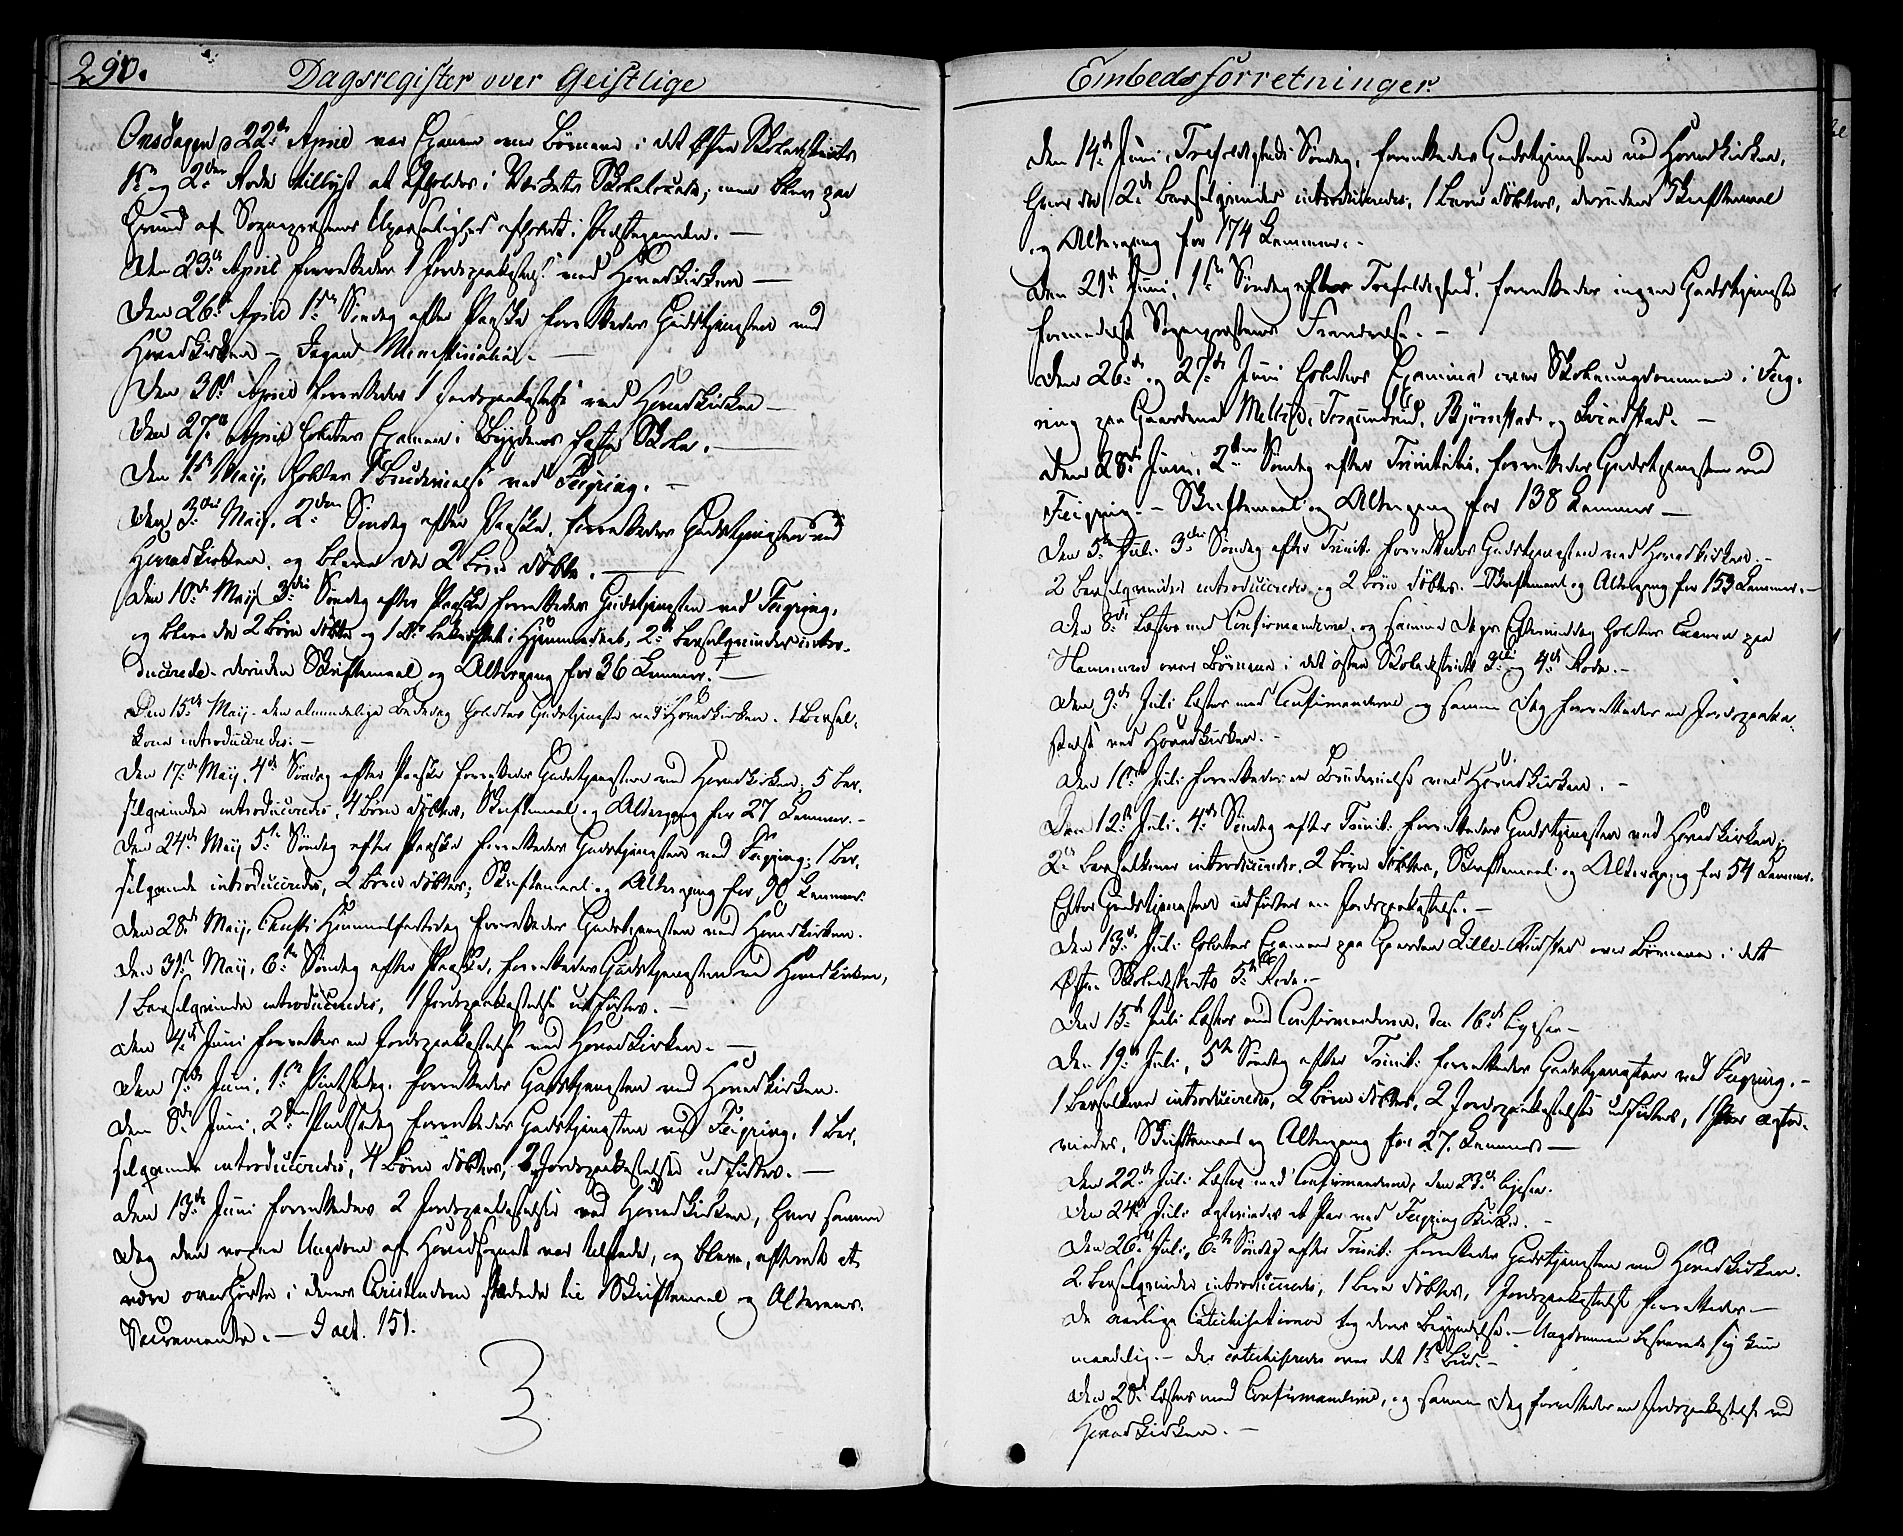 290.
Dagsregister over Geistlige
Onsdagen d 22de April var Examen over Børnene i det Østre Skoledistricts
1ste og 2den Rode tillyst at afholdes i Værkets Skolelocale; men blev paa
Grund af Sognepræstens Upasselighed afholdt i Præstegaarden. —
Den 23de April forrettedes 1 Jordspaakastelse ved Hovedkirken —
Den 26de April 1ste Søndag efter Paaske forrettedes Gudstjenesten ved
Hovedkirken — Ingen Ministerialia. —
Den 30te April forrettedes 1 Jordspaakastelse ved Hovedkirken —
Den 27de April holdtes Examen i Bygdens faste Skole. —
Den 1ste Maij, holdtes 1 Brudevielse ved Feiring. —
Den 3die Maij. 2den Søndag efter Paaske, forrettedes Gudstjenesten ved
Hovedkirken, og bleve der 2 Børn døbte. —
Den 10de Maij 3die Søndag efter Paaske forrettedes Gudstjenesten ved Feiring,
og bleve der 2 Børn døbte og 1 do bekræftet i Hjemmedaab, 2de Barselqvinder intro-
ducerede. desuden Skriftemaal og Altergang for 36 Lemmer. —
Den 15de Maij. den almindelige Bededag holdtes Gudstjeneste ved Hovedkirken. 1 Barsel-
kone introduceredes. —
Den 17de Maij, 4de Søndag efter Paaske forrettedes Gudstjenesten ved Hovedkirken; 5 Bar-
selqvinder introduceredes, 4 Børn døbtes, Skriftemaal og Altergang for 27 Lemmer. —
Den 24de Maij 5te Søndag efter Paaske forrettedes Gudstjenesten ved Feiring; 1 Bar-
selqvinde introduceredes, 2 Børn døbtes; Skriftemaal og Altergang for 90 Lemmer.
Den 28de Maij, Christi Himmelfartsdag forrettedes Gudstjenesten ved Hovedkirken.
Den 31te Maij, 6te Søndag efter Paaske, forrettedes Gudstjenesten ved Hovedkirken,
1 Barselqvinde introduceredes, 1 Jordspaakastelse udførtes. —
Den 4de Juni forrettes en Jordspaakastelse ved Hovedkirken. —
Den 7de Juni, 1ste Pintsedag. forrettedes Gudstjenesten ved Hovedkirken.
Den 8de Juni, 2den Pintsedag forrettedes Gudstjenesten ved Feiring, 1 Bar-
selqvinde introduceredes, 4 Børn døbtes, 2 Jordspaakastelser udførtes. —
Den 13de Juni forrettedes 2 Jordspaakastelser ved Hovedkirken, hvor samme
Dag den voxne Ungdom af Hovedsognet var tilstede, og bleve, efterat at
være overhørte i deres Christendom stædede til Skriftemaal og Alterens
Sacramente. — I alt. 151.
3
Embedsforretninger.
Den 14de Juni, Trefoldigheds Søndag, forrettedes Gudstjenesten ved Hovedkirken,
hvor der 2de Barselqvinder introduceredes, 1 Barn døbtes, desuden Skriftemaal
og Altergang for 174 Lemmer. —
Den 21de Juni, 1ste Søndag efter Trefoldighed, forrettedes ingen Gudstjeneste
formedelst Sognepræstens Fraværelse. —
Den 26de og 27de Juni holdtes Examina over Skoleungdommen i Fei-
ring paa Gaardene Molstad, Torgunrud, Bjørnstad og Qvindstad. —
Den 28de Juni, 2den Søndag efter Trinitatis, forrettedes Gudstjenesten ved
Feiring. — Skriftemaal og Altergang for 138 Lemmer —
Den 5te Juli 3die Søndag efter Trinit. forrettedes Gudstjenesten ved Hovedkirken. —
2 Barselqvinder introduceredes og 2 Børn døbtes. — Skriftemaal og Altergang for 153 Lemmer. —
Den 8de Læstes med Confirmanderne og samme Dags Eftermiddag holdtes Examen paa
over Børnene i det østre Skoledistricts 3die og 4de Rode. —
Den 9de Juli læstes med Confirmanderne og samme Dag forrettedes en Jordspaaka-
stelse ved Hovedkirken. —
Den 10de Juli forrettedes en Brudevielse ved Hovedkirken. —
Den 12te Juli. 4de Søndag efter Trinit. forrettedes Gudstjenesten ved Hovedkirken;
2de Barselkoner introduceredes, 2 Børn døbtes, Skriftemaal og Altergang for 54 Lemmer.
Efter Gudstjenesten udførtes en Jordspaakastelse. —
Den 13de Juli holdtes Examen paa Gaarden Lille- over Børnene i det
Østre Skoledistricts 5te Rode. —
Den 15de Juli læstes med Confirmanderne, den 16de ligesaa —
Den 19de Juli, 5te Søndag efter Trinit. forrettedes Gudstjenesten ved Feiring. —
1 Barselkone introduceredes, 2 Børn døbtes, 2 Jordspaakastelser udførtes, 1 Par ægte-
viedes, Skriftemaal og Altergang for 27. Lemmer —
Den 22de Juli læstes med Confirmanderne, den 23de ligesaa.
Den 24de Juli ægteviedes et Par ved Feiring Kirke. —
Den 26de Juli, 6te Søndag efter Trinit. forrettedes Gudstjenesten ved Hovedkirken.
2 Barselqvinder introduceredes, 1 Barn døbtes, 1 Jordspaakastelse forrettedes —
De aarlige Catechisationer tog deres Begyndelse. — Ungdommen besvarede sig kun
maadelig. — Der catechiseredes over det 1ste Bud. —
Den 28de læstes med Confirmanderne, og samme Dag forrettedes en Jordspaakastelse ved
Hovedkirken. —